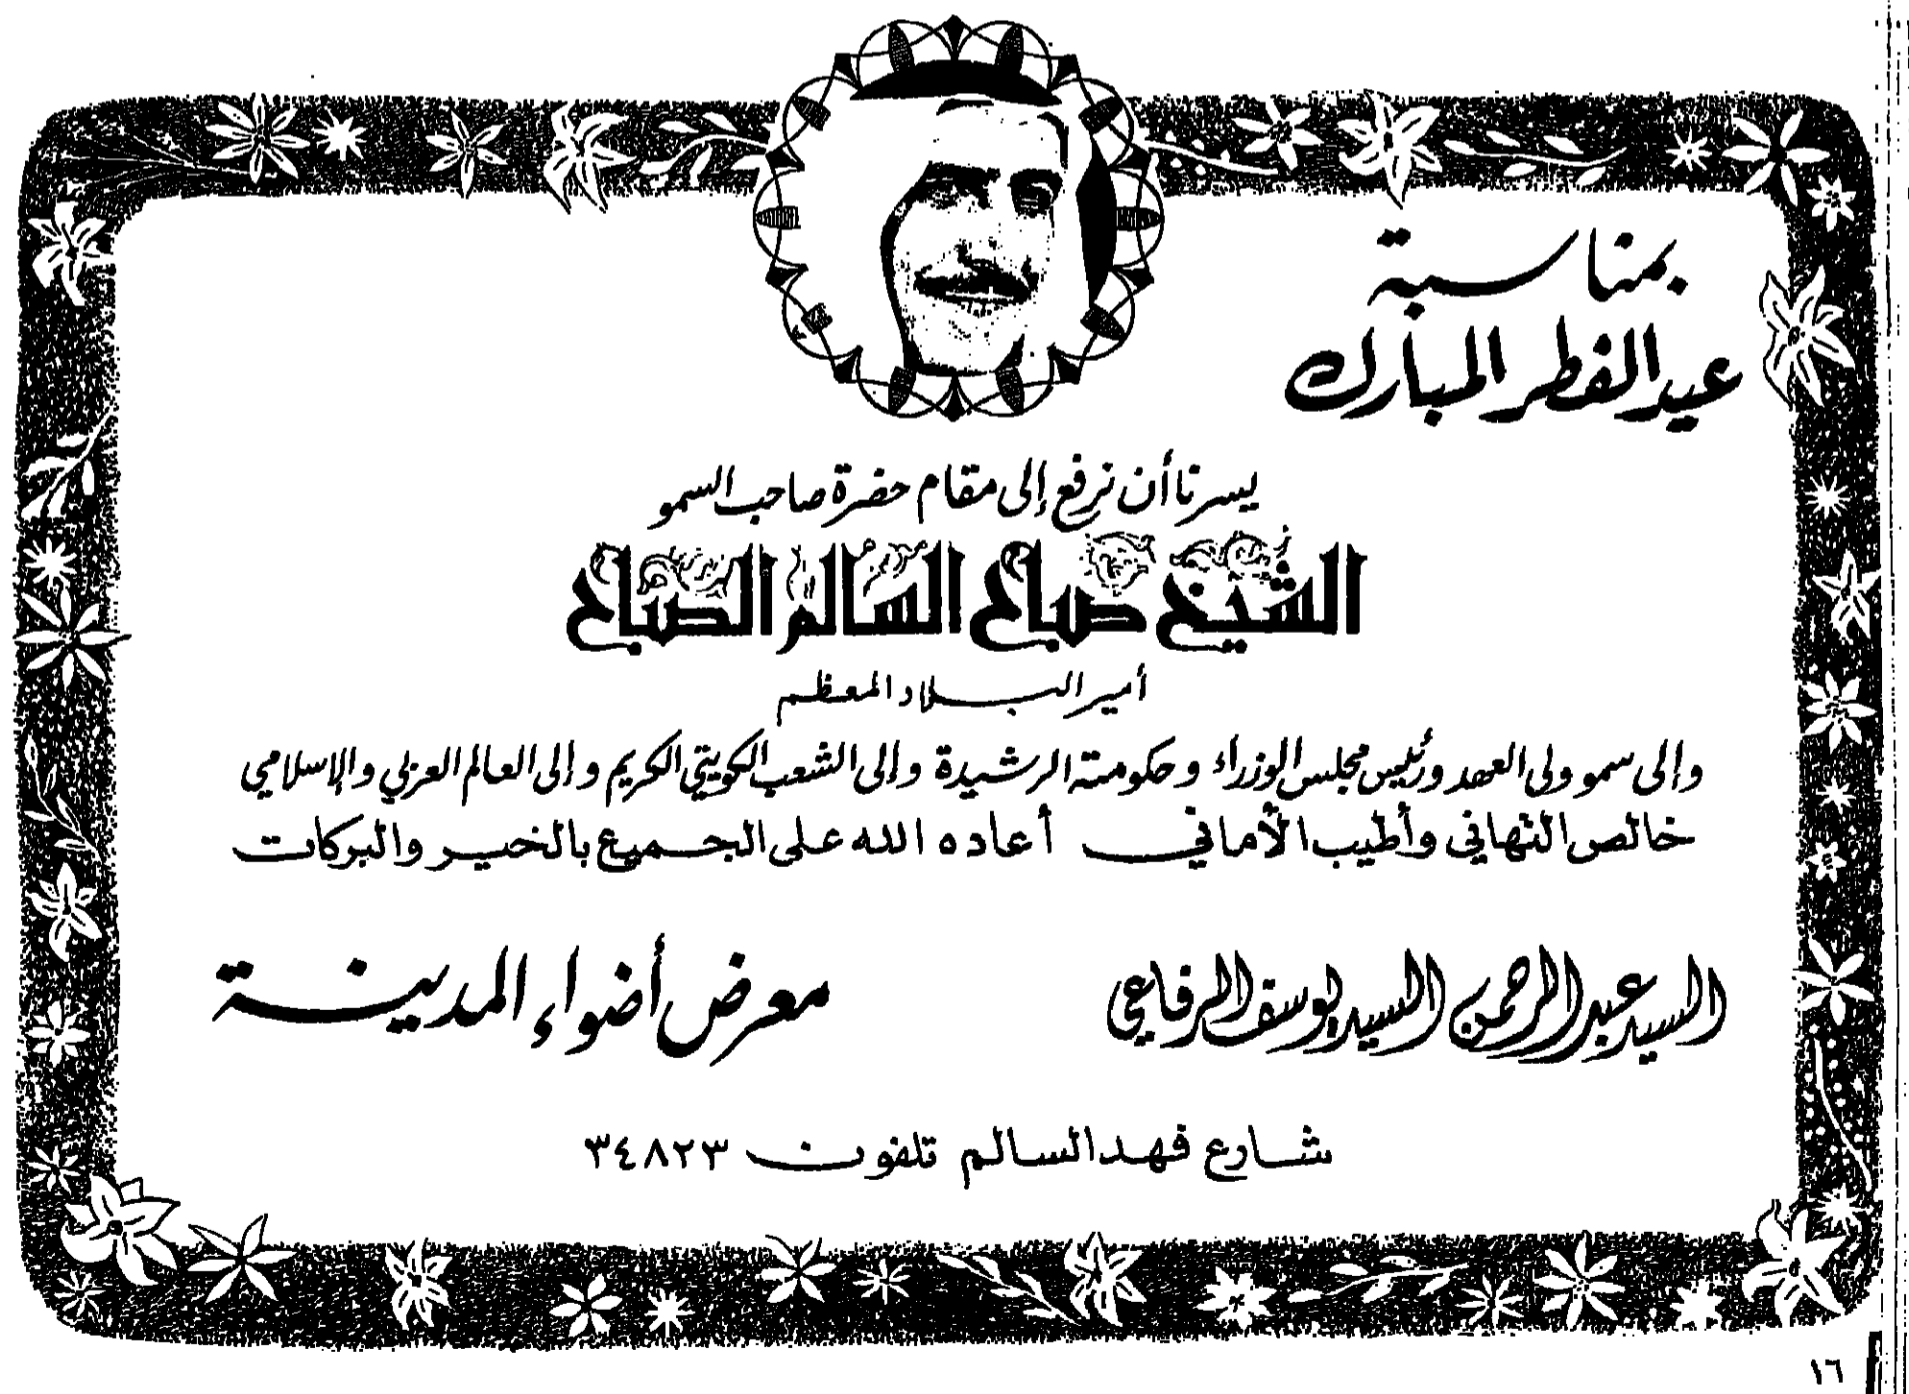 بمناسبة
عيد الفطر المبارك
يسرنا أن نرفع إلى مقام حضرة صاحب السمو
الشيخ صباح السالم الصباح
أمير البلاد المعظم
وإلى سمو ولى العهد ورئيس مجلس الوزراء وحكومته الرشيدة وإلى الشعب الكويتي الكريم وإلى العالم العربي والإسلامي
خالص التهاني وأطيب الأماني أعاده الله على الجميع بالخير والبركات
السيد عبد الرحمن السيد يوسف الرفاعي
معرض أضواء المدينة
شارع فهد السالم تلفون ٣٤٨٢٣
١٦